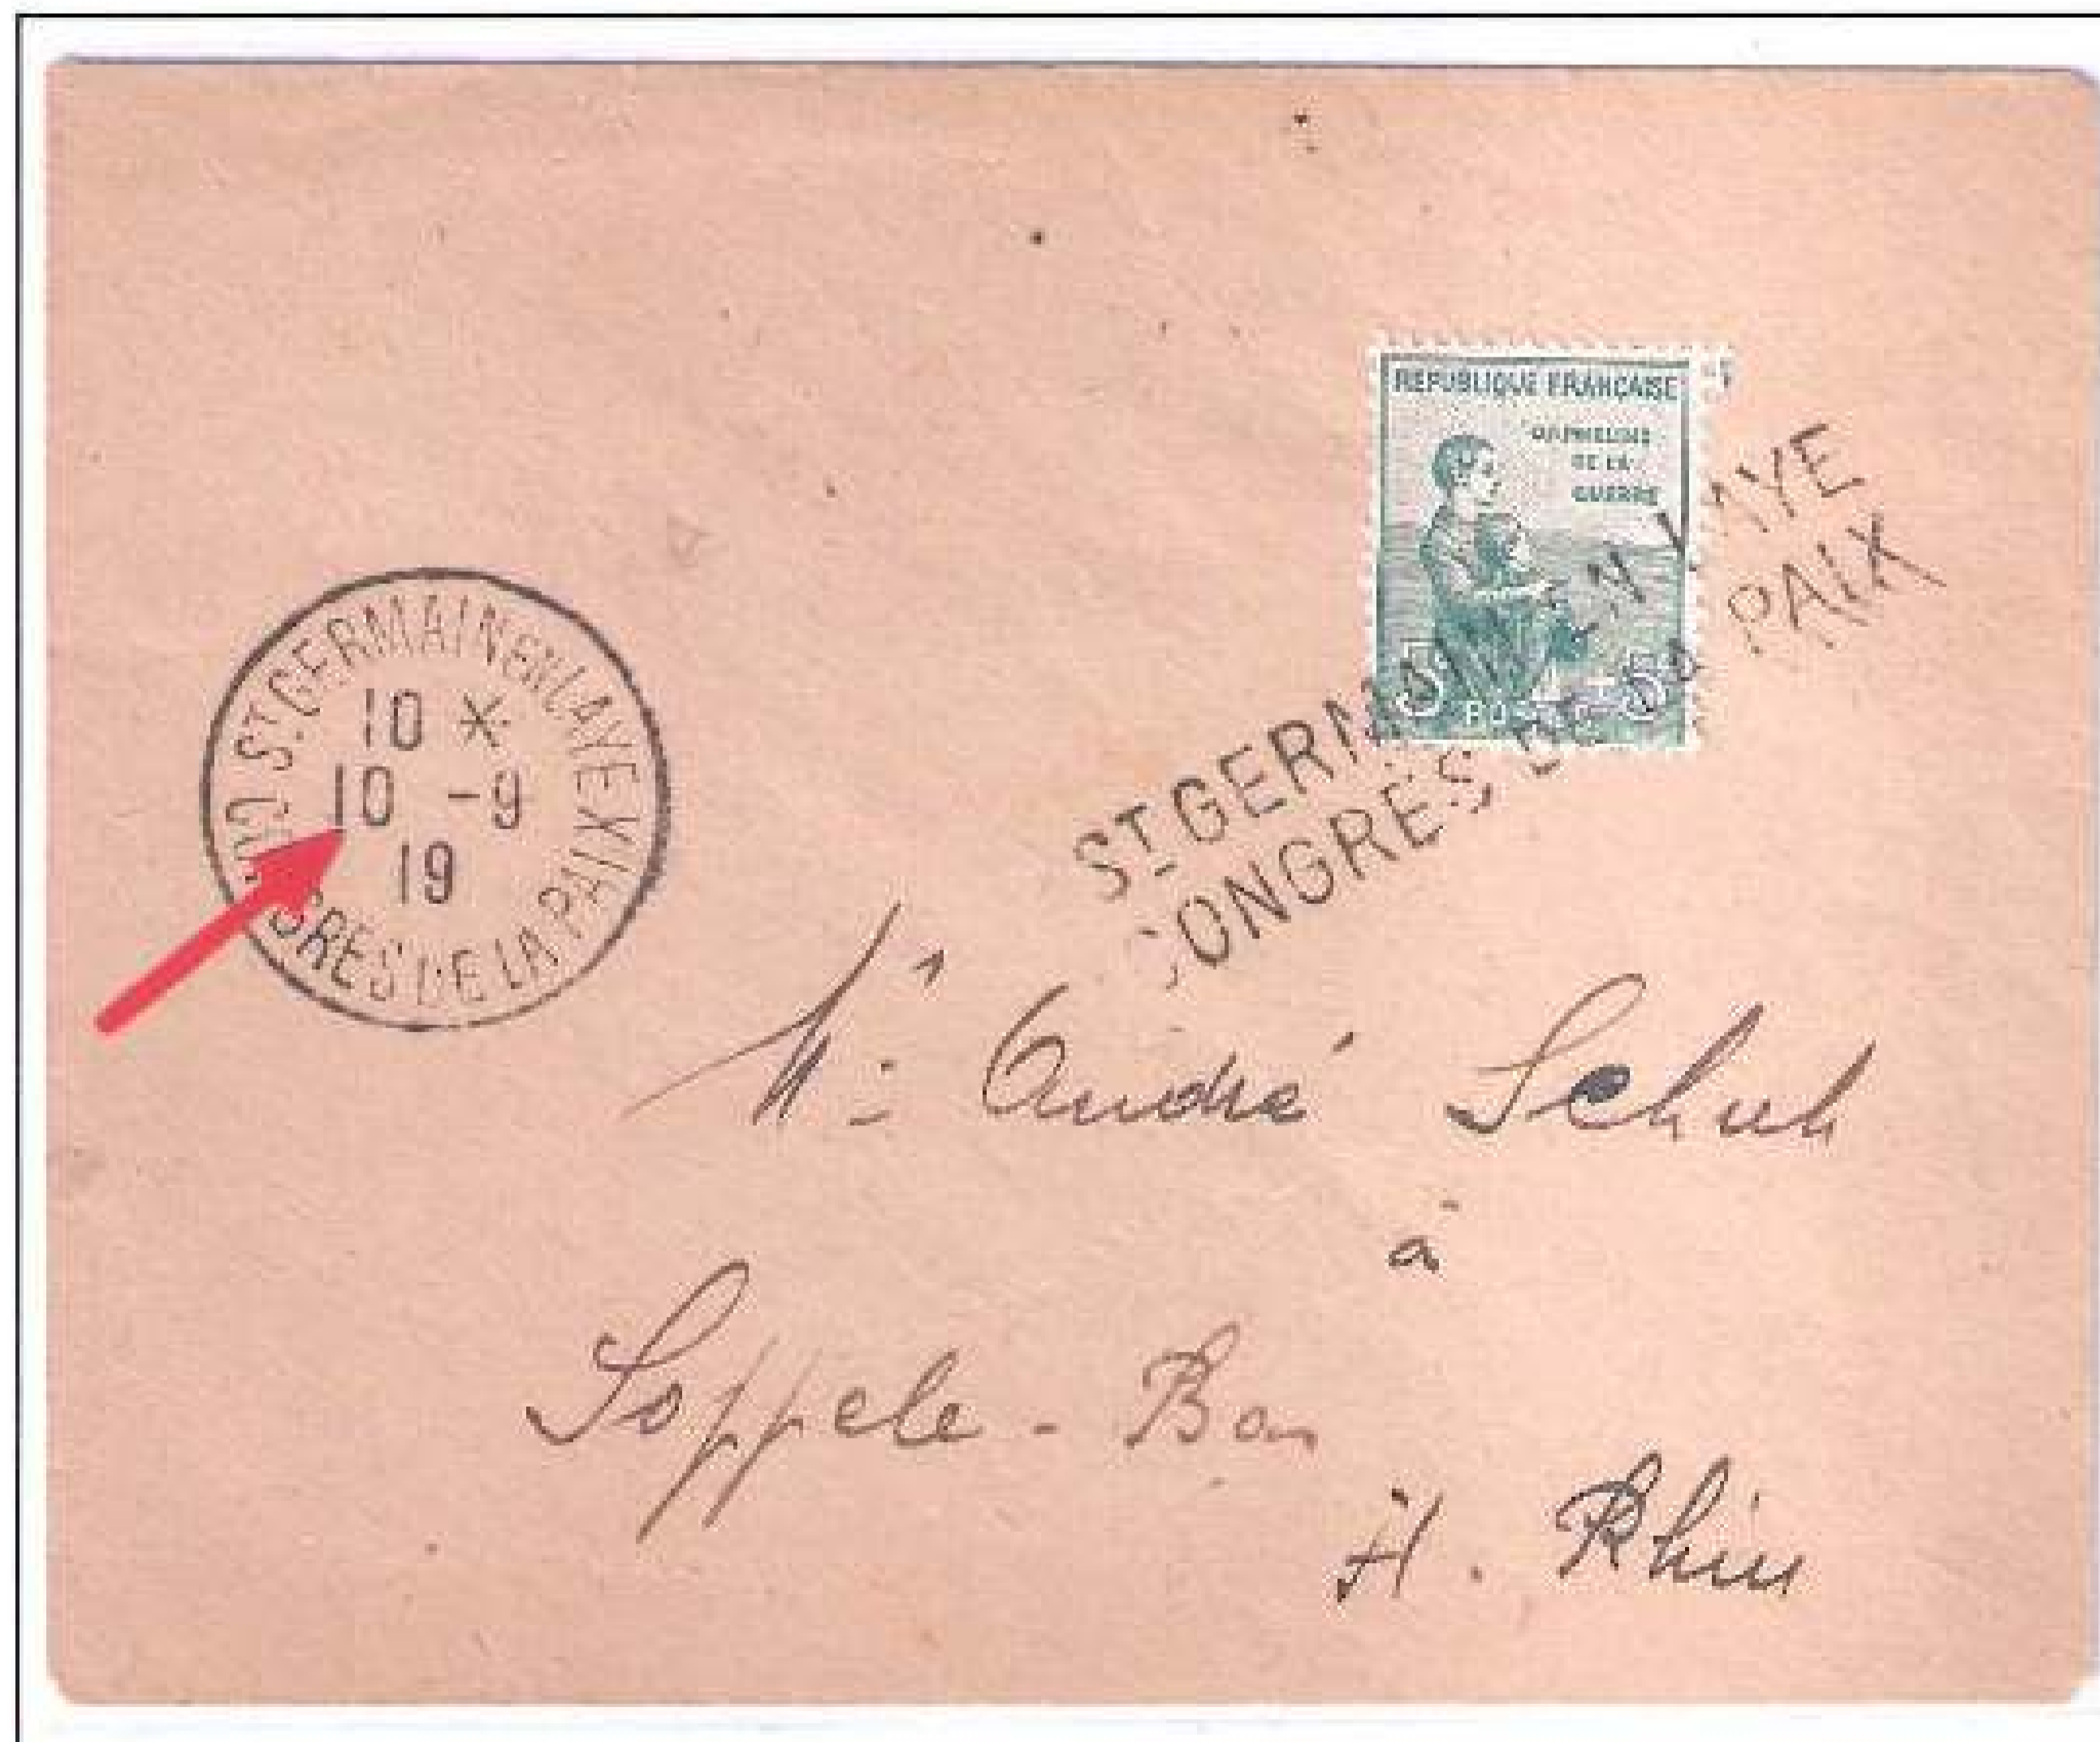 REPUBLIQUE FRANÇAISE
ORPHELINS
DE LA
GUERRE
5 POSTES 5
ST GERMAIN EN LAYE
CONGRES DE LA PAIX
ST GERMAIN EN LAYE
10 *
10 -9
19
CONGRES DE LA PAIX
Mr André Schuh
à
Soppe-le-Bas
H. Rhin